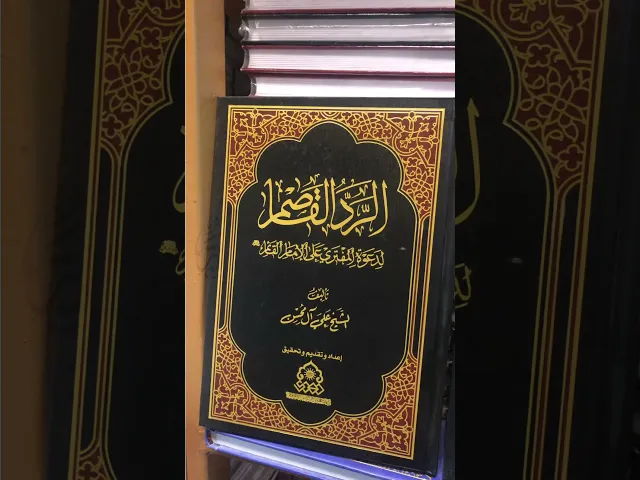 الرد القاصم
لدعوة المفتري على الإمام القائم
تأليف
الشيخ علي آل محسن
إعداد وتقديم وتحقيق